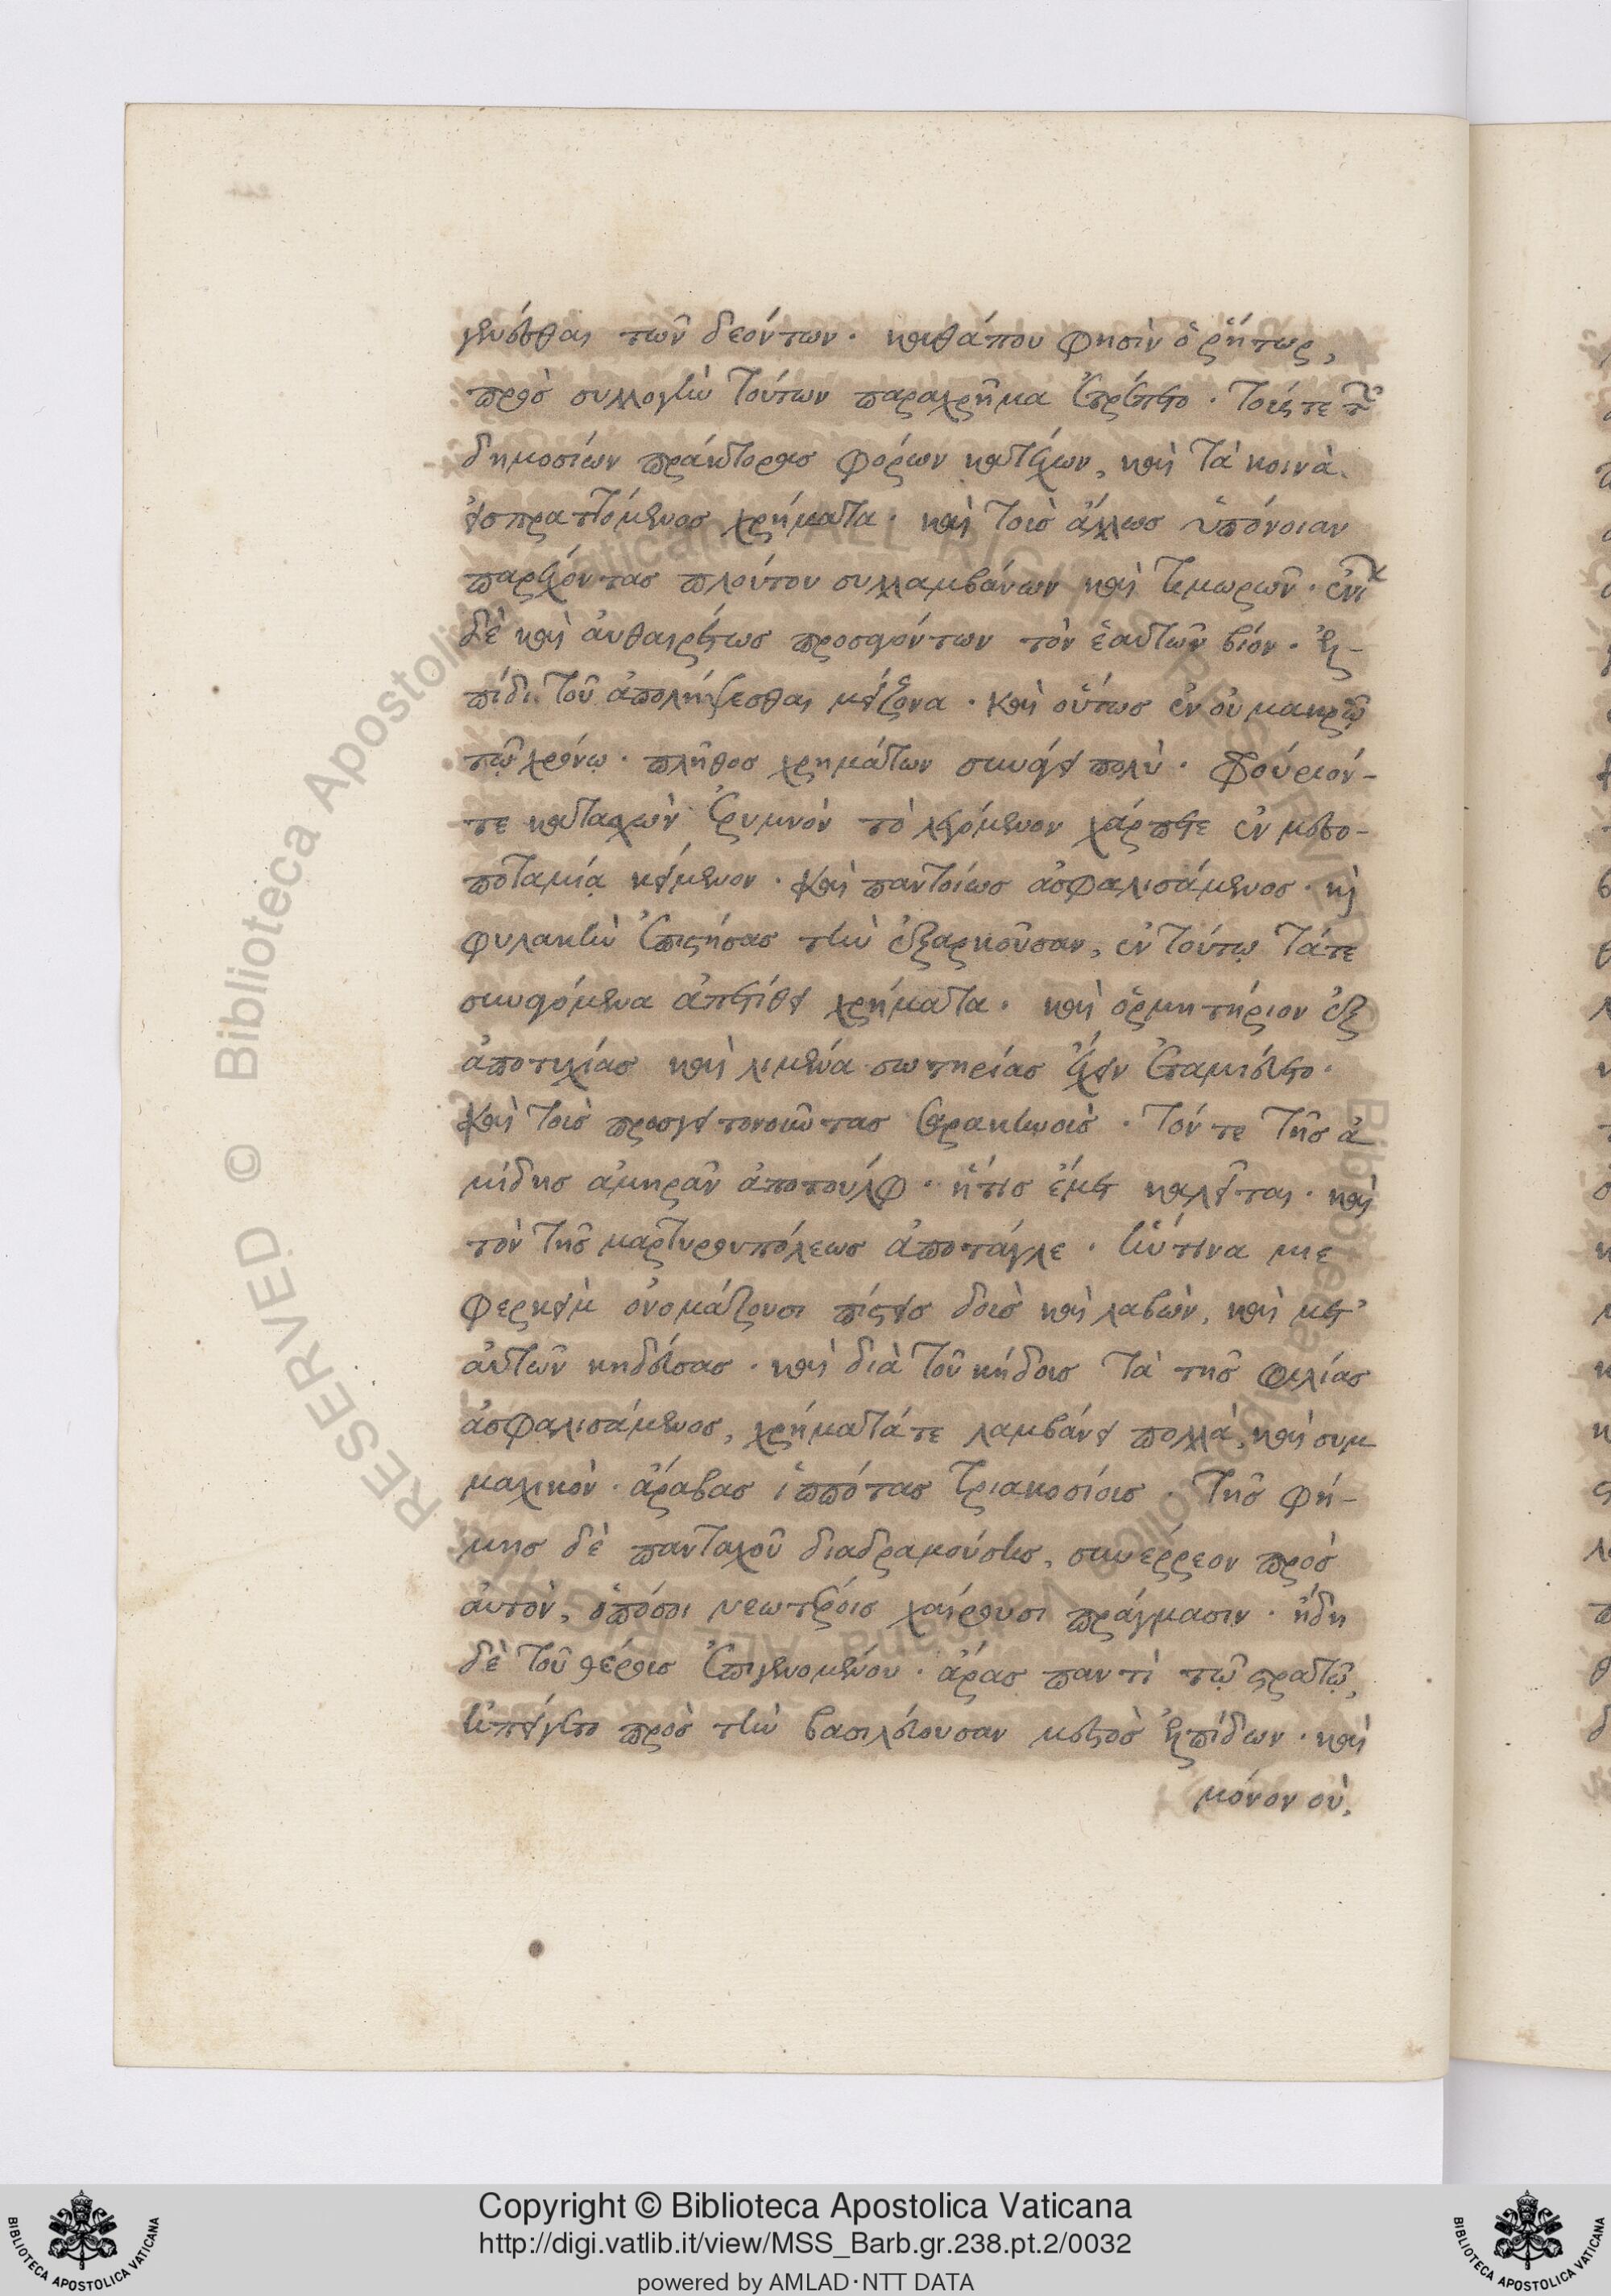 γενέσθαι τῶν δεόντων· καθάπου φησὶν ὁ ῥήτωρ,
πρὸς συλλογὴν τούτων παραχρῆμα ἐτρέπετο. τούς τε τῶν
δημοσίων πράκτορας φόρων κατέχων, καὶ τὰ κοινὰ
εἰσπραττόμενος χρήματα· καὶ τοὺς ἄλλως ὑπόνοιαν
παρέχόντας πλούτου συλλαμβάνων καὶ τιμωρῶν· ἐνίων
δὲ καὶ αὐθαιρέτως προσαγόντων τὸν ἑαυτῶν βίον· ἐλ-
πίδι τοῦ ἀπολήψεσθαι μείζονα· καὶ οὕτως ἐν οὐ μακρῷ
τῷ χρόνῳ· πλῆθος χρημάτων συνάγει πολὺ· φρούριόν-
τε κατασχὼν ἐρυμνὸν τὸ λεγόμενον χάρπετε ἐν μεσο-
ποταμίᾳ κείμενον· καὶ παντοίως ἀσφαλισάμενος· καὶ
φυλακὴν ἐπιστήσας τὴν ἐξαρκοῦσαν, ἐν τούτῳ τά τε
συναγόμενα ἀπετίθει χρήματα· καὶ ὁρμητήριον ἐξ
ἀποτυχίας καὶ λιμένα σωτηρίας ἔχειν ἐταμιεύετο·
καὶ τοὺς προσγειτονοῦντας σαρακηνοὺς· τόν τε τῆς ἀ
μίδης ἀμηρᾶν ἀποτούλφ· ἥτις ἔμετ καλεῖται· καὶ
τὸν τῆς μαρτυρουπόλεως ἀποτάγλε· ἥντινα μιε
φερκεὶμ ὀνομάζουσι πίστεις δοὺς καὶ λαβὼν, καὶ μετ'
αὐτῶν κηδεύσας· καὶ διὰ τοῦ κήδους τὰ τῆς φιλίας
ἀσφαλισάμενος, χρήματά τε λαμβάνει πολλὰ, καὶ συμ
μαχικὸν· ἄραβας ἱππότας τριακοσίους· τῆς φή-
μης δὲ πανταχοῦ διαδραμούσης, συνέρρεον πρὸς
αὐτὸν, ὁπόσοι νεωτέροις χαίρουσι πράγμασιν· ἤδη
δὲ τοῦ θέρους ἐπιγενομένου· ἄρας παντὶ τῷ στρατῷ,
ἠπείγετο πρὸς τὴν βασιλεύουσαν μεστὸς ἐλπίδων· καὶ
μόνον οὐ,
Copyright © Biblioteca Apostolica Vaticana
http://digi.vatlib.it/view/MSS_Barb.gr.238.pt.2/0032
powered by AMLAD·NTT DATA